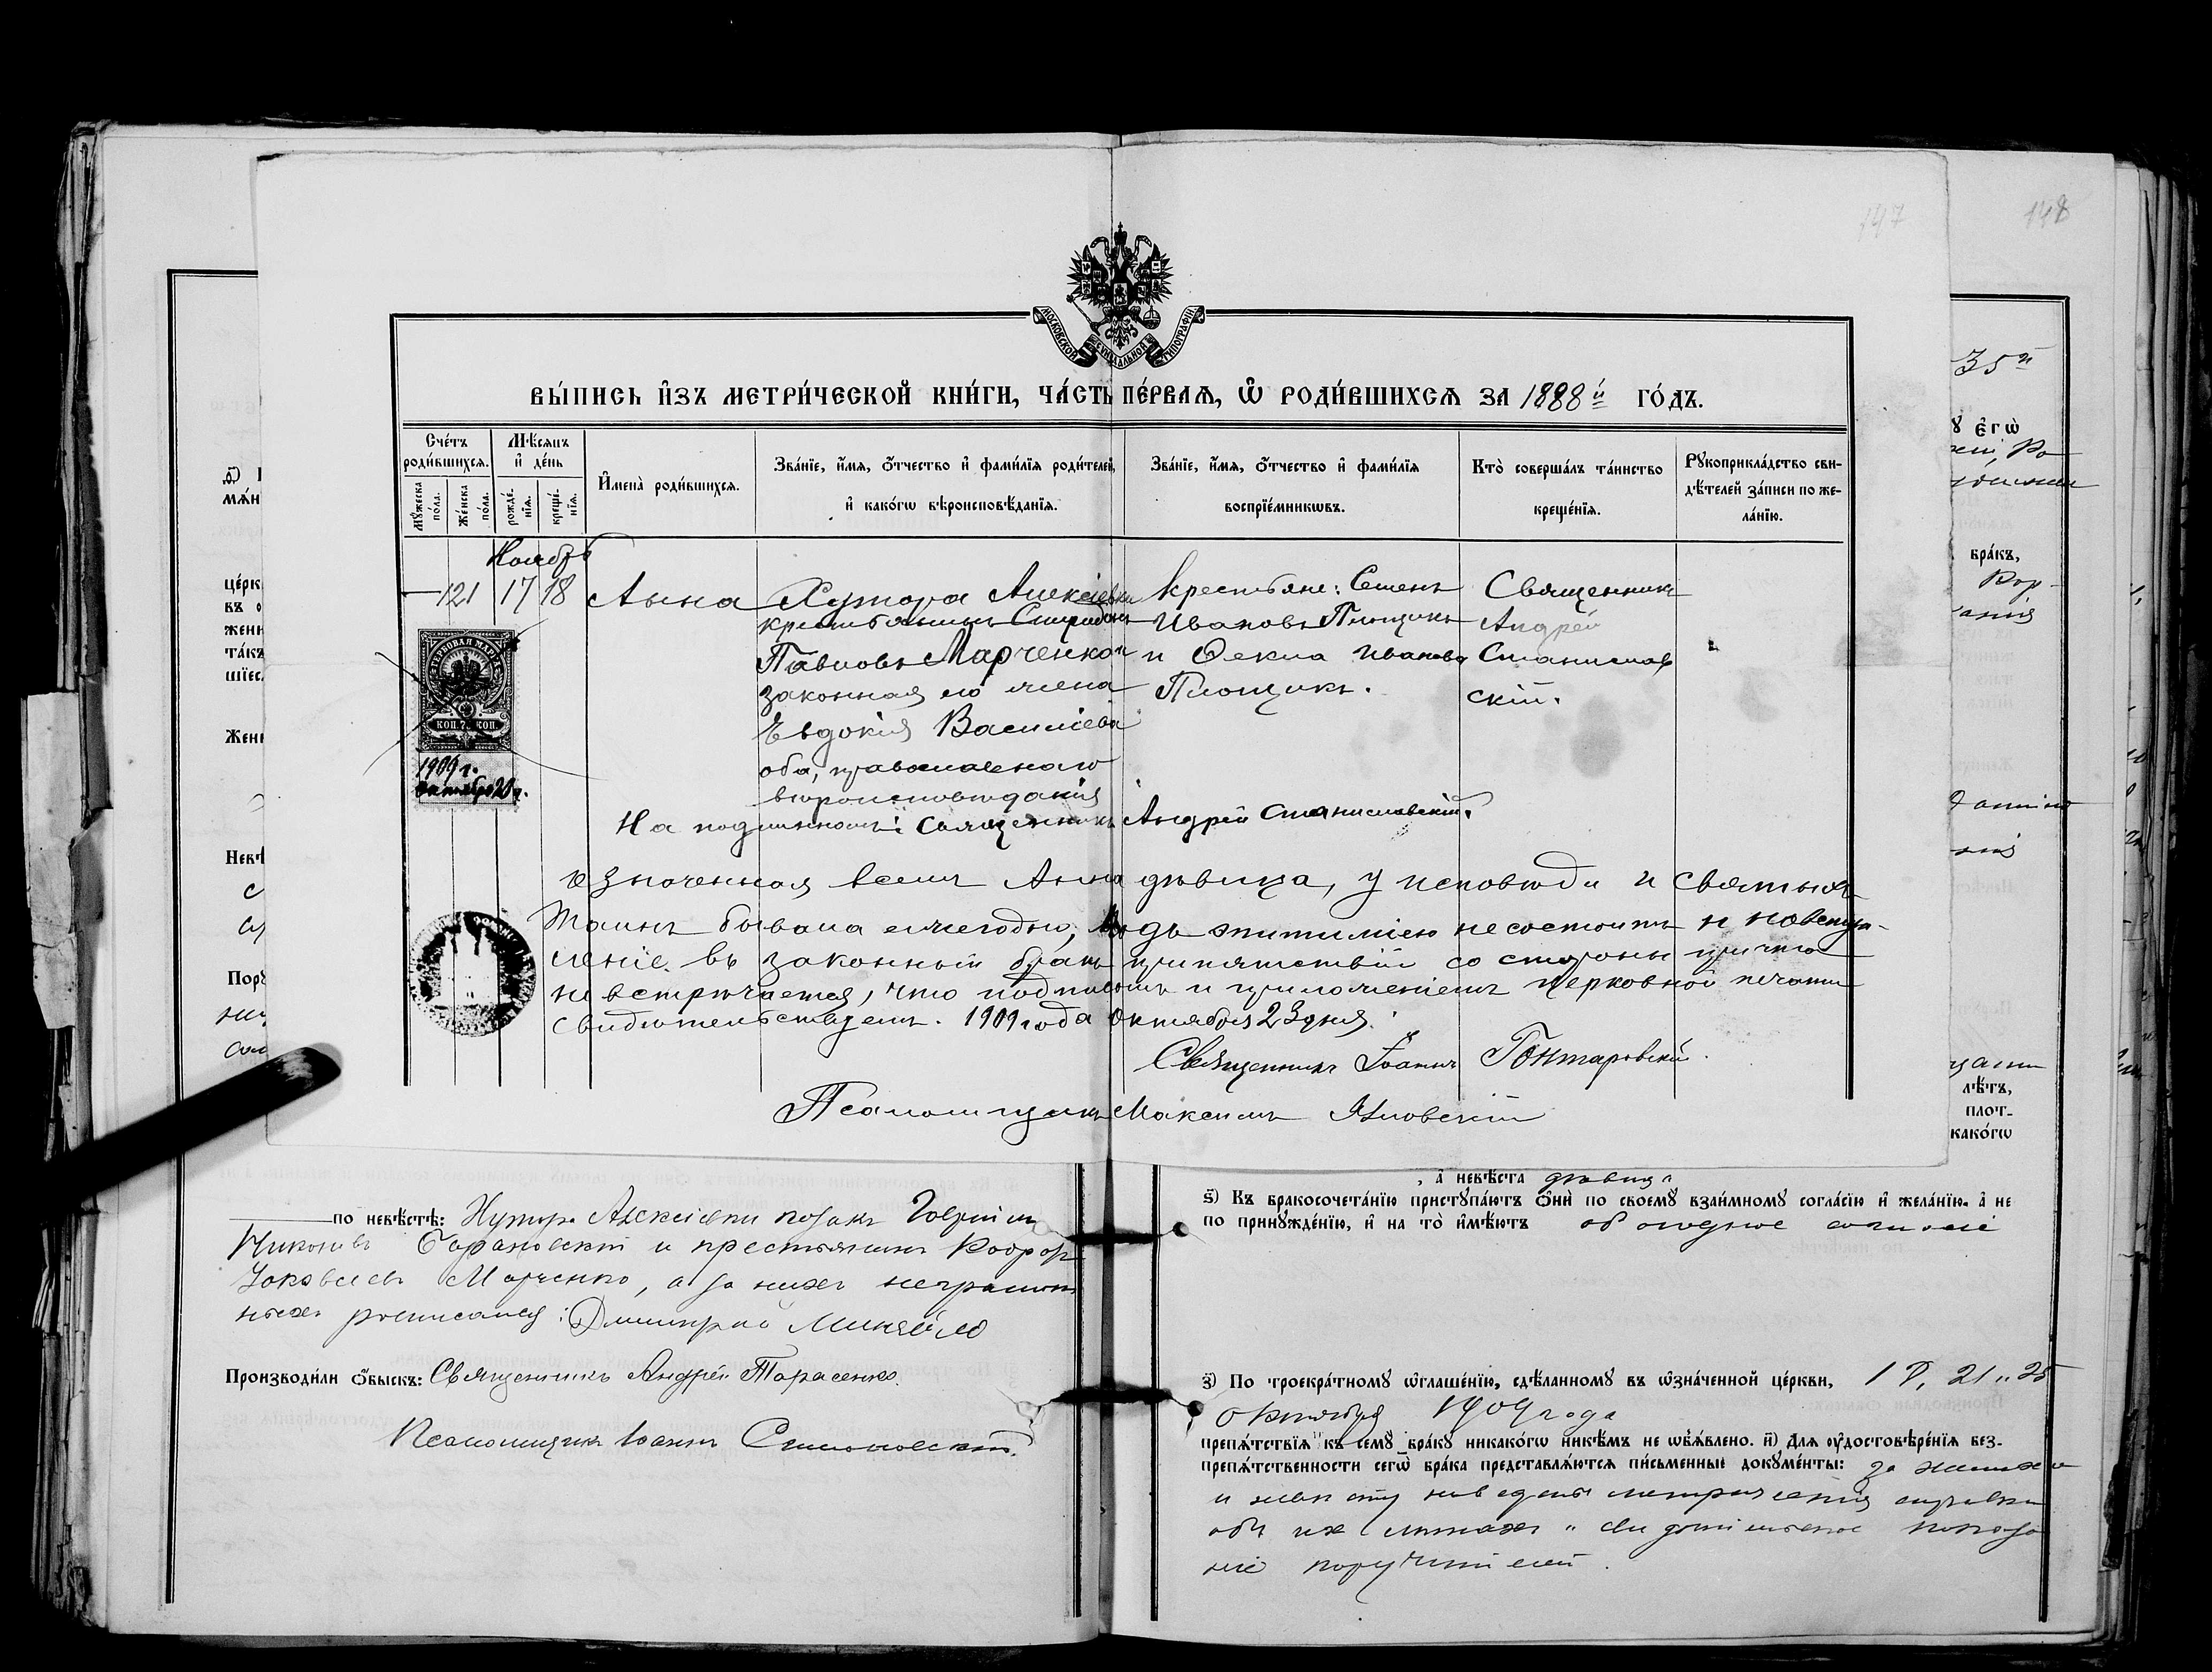 147
148
МОСКОВСКОЙ СѴНОДАЛЬНОЙ ТИПОГРАФІИ
ВЫ́ПИСЬ И҆ЗЪ МЕТРИ́ЧЕСКОЙ КНИ́ГИ, ЧА́СТЬ ПЕ́РВАЯ, Ѡ҆ РОДИ́ВШИХСЯ ЗА 1888й ГО́ДЪ.
Сче́тъ роди́вшихся.
Мꙋ́жеска по́ла.
Же́нска по́ла.
Мѣ́сяцъ и҆ де́нь
рожде́нїя.
креще́нїя.
И҆мена̀ роди́вшихся.
Зва́нїе, и҆́мя, ѻ҆́тчество и҆ фами́лїя роди́телей,
и҆ како́гѡ вѣроисповѣ́данїя.
Зва́нїе, и҆́мя, ѻ҆́тчество и҆ фами́лїя
воспрїе́мникѡвъ.
Кто̀ соверша́лъ та́инство
креще́нїя.
Рꙋкоприкла́дство сви-
дѣ́телей за́писи по же-
ла́нїю.
Ноябрь
— 121 17 18
Анна
Хутора Алексіевки
крестьянинъ Спиридонъ
Павловъ Марченко и
законная его жена
Евдокія Василіева
оба, православнаго
вѣроисповѣданія
Крестьяне: Семенъ
Ивановъ Плющикъ
и Ѳекла Иванова
Плющикъ.
Священникъ
Андрей
Станиславскій.
КОП. 75 КОП.
1909 г.
Октября 20 д.
На подлинномъ: Священникъ Андрей Станиславскій.
Означенная всемъ Анна дѣвица, у исповѣди и Святыхъ
Таинъ бывала ежегодно, подъ эпитиміею не состоитъ и на вступ-
леніе въ законный бракъ препятствій со стороны причта
не встрѣчается, что подписомъ и приложеніемъ церковной печати
свидѣтельствуемъ. 1909 года Октября 23 дня.
Священникъ Іоаннъ Гонтаровскій
Псаломщикъ Максимъ Яновскій
35й
бра́къ,
лѣ́тъ,
плот-
како́гѡ
по невѣ́стѣ: Хутора Алексіевки козакъ
Барановскій и крестьянинъ
Яковлевъ Марченко, а за нихъ неграмот
ныхъ росписался: Дмитрій Михайло
Производи́ли ѻ҆́быскъ: Священникъ Андрей Тарасенко.
Псаломщикъ Іоаннъ
, а҆ невѣ́ста дѣвица
ѕ҃) Къ бракосочета́нїю пристꙋпа́ютъ ѻ҆нѝ по своемꙋ̀ взаи́мномꙋ согла́сїю и҆ жела́нїю, а҆ не
по принꙋжде́нїю, и҆ на то̀ и҆мѣ́ютъ обоюдное согласіе
з҃) По троекра́тномꙋ ѡ҆глаше́нїю, сдѣ́ланномꙋ въ ѡ҆зна́ченной це́ркви, 18, 21 и 25
октября 1909 года
препя́тствїя къ семꙋ̀ бра́кꙋ никако́гѡ никѣ́мъ не ѡ҆б̾я́влено. и҃) Для ᲂу҆достовѣре́нїя без-
препя́тственности сегѡ̀ бра́ка представля́ются пи́сьменные докꙋме́нты: за жениха
и невѣсту наведены метрическія справки
объ ихъ лѣтахъ и показа
ніе поручителей.